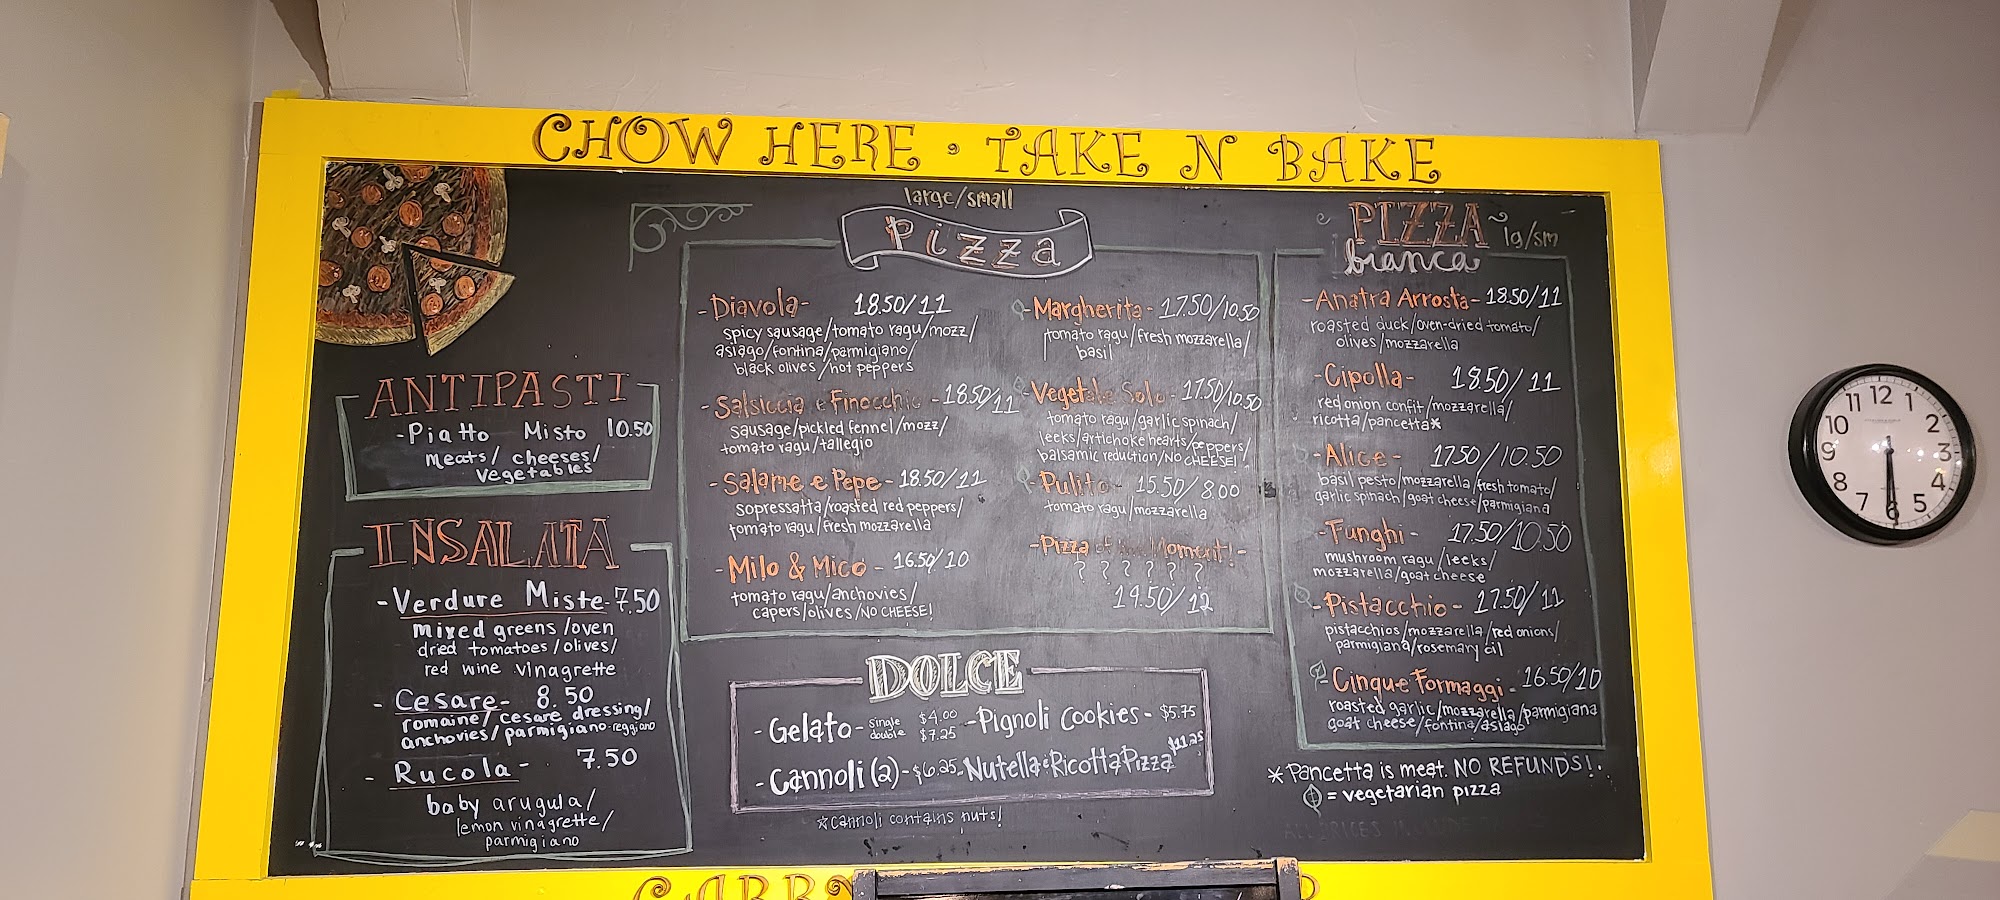 CHOW HERE • TAKE N BAKE
large/small
Pizza
- Diavola - 18.50/11
spicy sausage/tomato ragu/mozz/
asiago/fontina/parmigiano/
black olives/hot peppers
- Salsiccia e Finocchio - 18.50/11
sausage/pickled fennel/mozz/
tomato ragu/tallegio
- Salame e Pepe - 18.50/11
sopressatta/roasted red peppers/
tomato ragu/fresh mozzarella
- Milo & Mico - 16.50/10
tomato ragu/anchovies/
capers/olives/NO CHEESE!
- Margherita - 17.50/10.50
tomato ragu/fresh mozzarella/
basil
- Vegetale Solo - 17.50/10.50
tomato ragu/garlic spinach/
leeks/artichoke hearts/peppers/
balsamic reduction/NO CHEESE!
- Pulito - 15.50/8.00
tomato ragu/mozzarella
- Pizza of the Moment! -
? ? ? ? ? ?
19.50/12
PIZZA lg/sm
bianca
- Anatra Arrosta - 18.50/11
roasted duck/oven-dried tomato/
olives/mozzarella
- Cipolla - 18.50/11
red onion confit/mozzarella/
ricotta/pancetta*
- Alice - 17.50/10.50
basil pesto/mozzarella/fresh tomato/
garlic spinach/goat cheese/parmigiana
- Funghi - 17.50/10.50
mushroom ragu/leeks/
mozzarella/goat cheese
- Pistacchio - 17.50/11
pistachios/mozzarella/red onions/
parmigiana/rosemary oil
- Cinque Formaggi - 16.50/10
roasted garlic/mozzarella/parmigiana
goat cheese/fontina/asiago
* Pancetta is meat. NO REFUNDS!.
= vegetarian pizza
ALL PRICES
ANTIPASTI
- Piatto Misto 10.50
meats/ cheeses/
vegetables
INSALATA
- Verdure Miste - 7.50
mixed greens /oven
dried tomatoes/olives/
red wine vinagrette
- Cesare - 8.50
romaine/ cesare dressing/
anchovies/parmigiano-reggiano
- Rucola - 7.50
baby arugula/
lemon vinagrette/
parmigiano
DOLCE
- Gelato - single $4.00
double $7.25
- Pignoli Cookies - $5.75
- Cannoli (2) - $6.25
- Nutella & Ricotta Pizza $11.25
☆ Cannoli contains nuts!
12
1
2
3
4
5
6
7
8
9
10
11